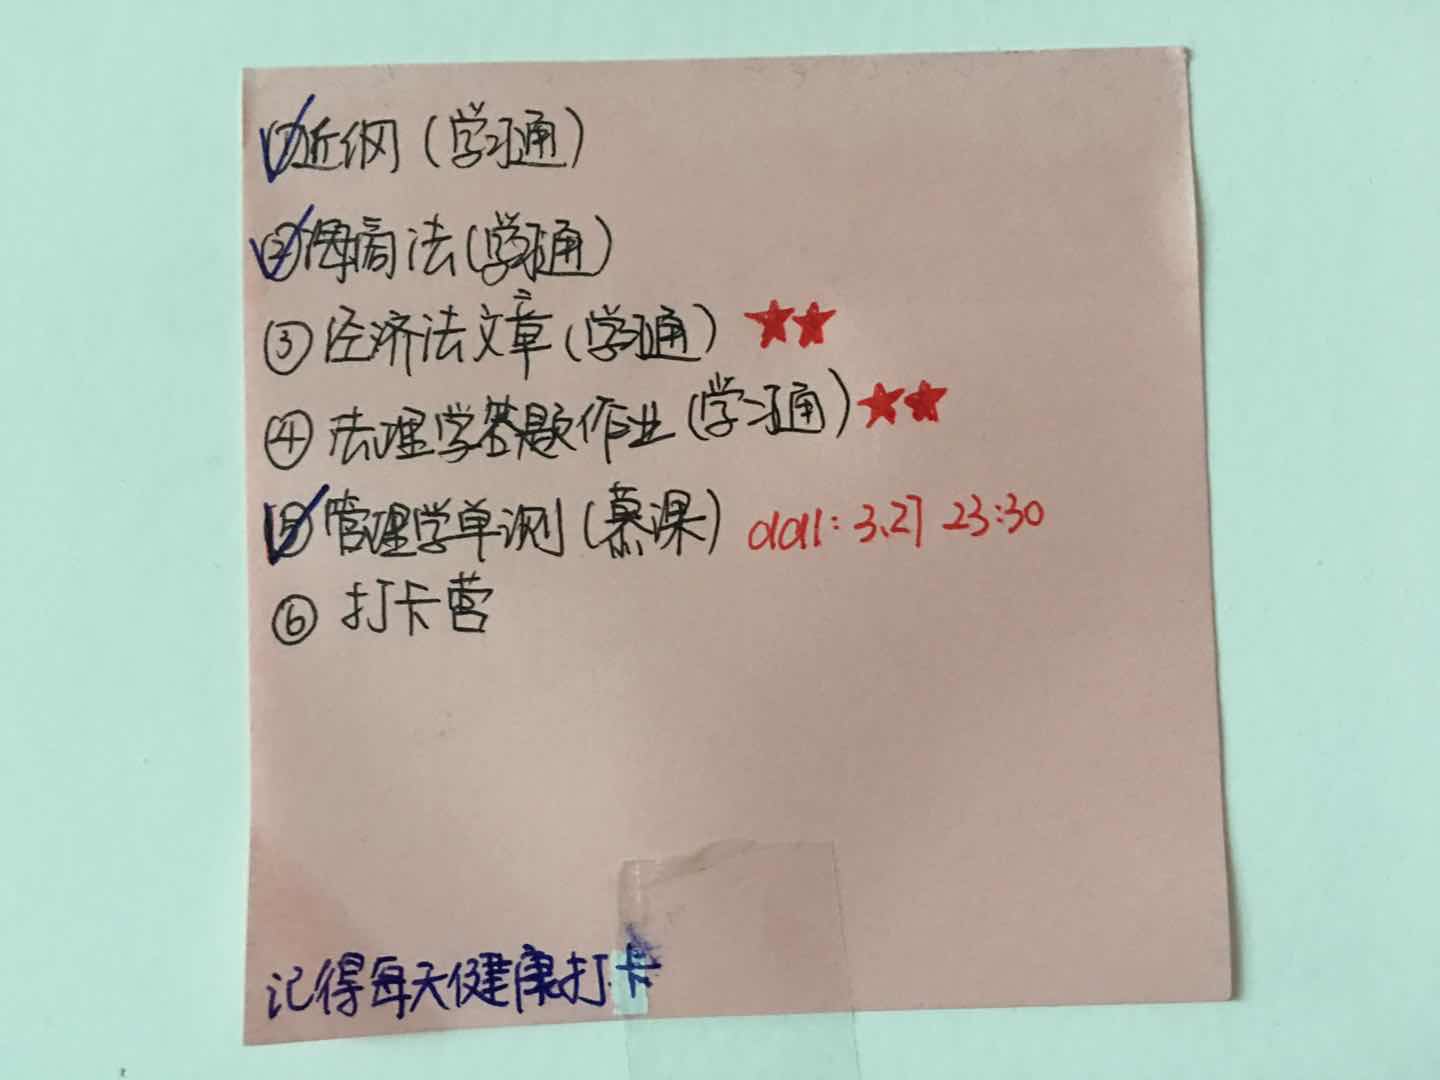 ①近纲(学习通)
②海商法(学习通)
③经济法文章(学习通)★★
④法理学答题作业(学习通)★★
⑤管理学单测(慕课) ddl: 3.27 23:30
⑥打卡营
记得每天健康打卡